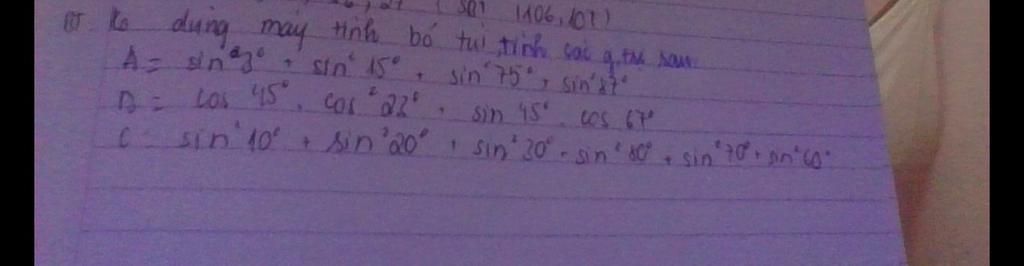 (SBT 106, 107)
BT. Ko dùng máy tính bỏ túi tính các g.trị sau
A = sin²3° + sin²15° + sin²75° + sin²87°
B = cos 45°. cos²22° + sin 45°. cos 67°
C = sin²10° + sin²20° + sin²30° + sin²80° + sin²70° + sin²60°